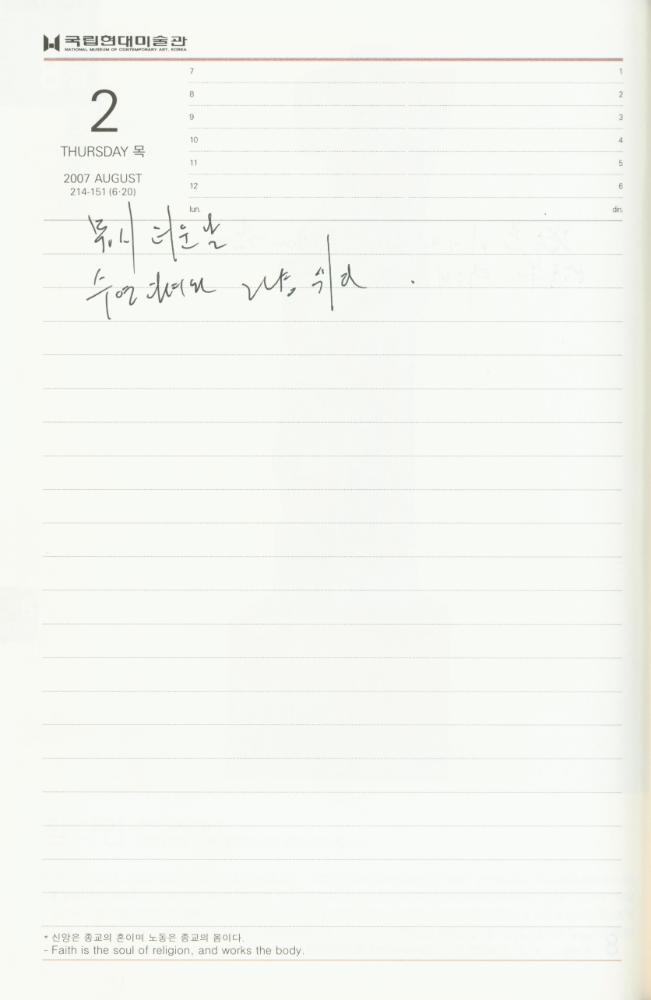 국립현대미술관
NATIONAL MUSEUM OF CONTEMPORARY ART, KOREA
2
THURSDAY 목
2007 AUGUST
214-151 (6·20)
7 1
8 2
9 3
10 4
11 5
12 6
lun. din.
몹시 더운 날
수영 다녀와 그냥 쉬다.
* 신앙은 종교의 혼이며 노동은 종교의 몸이다.
- Faith is the soul of religion, and works the body.